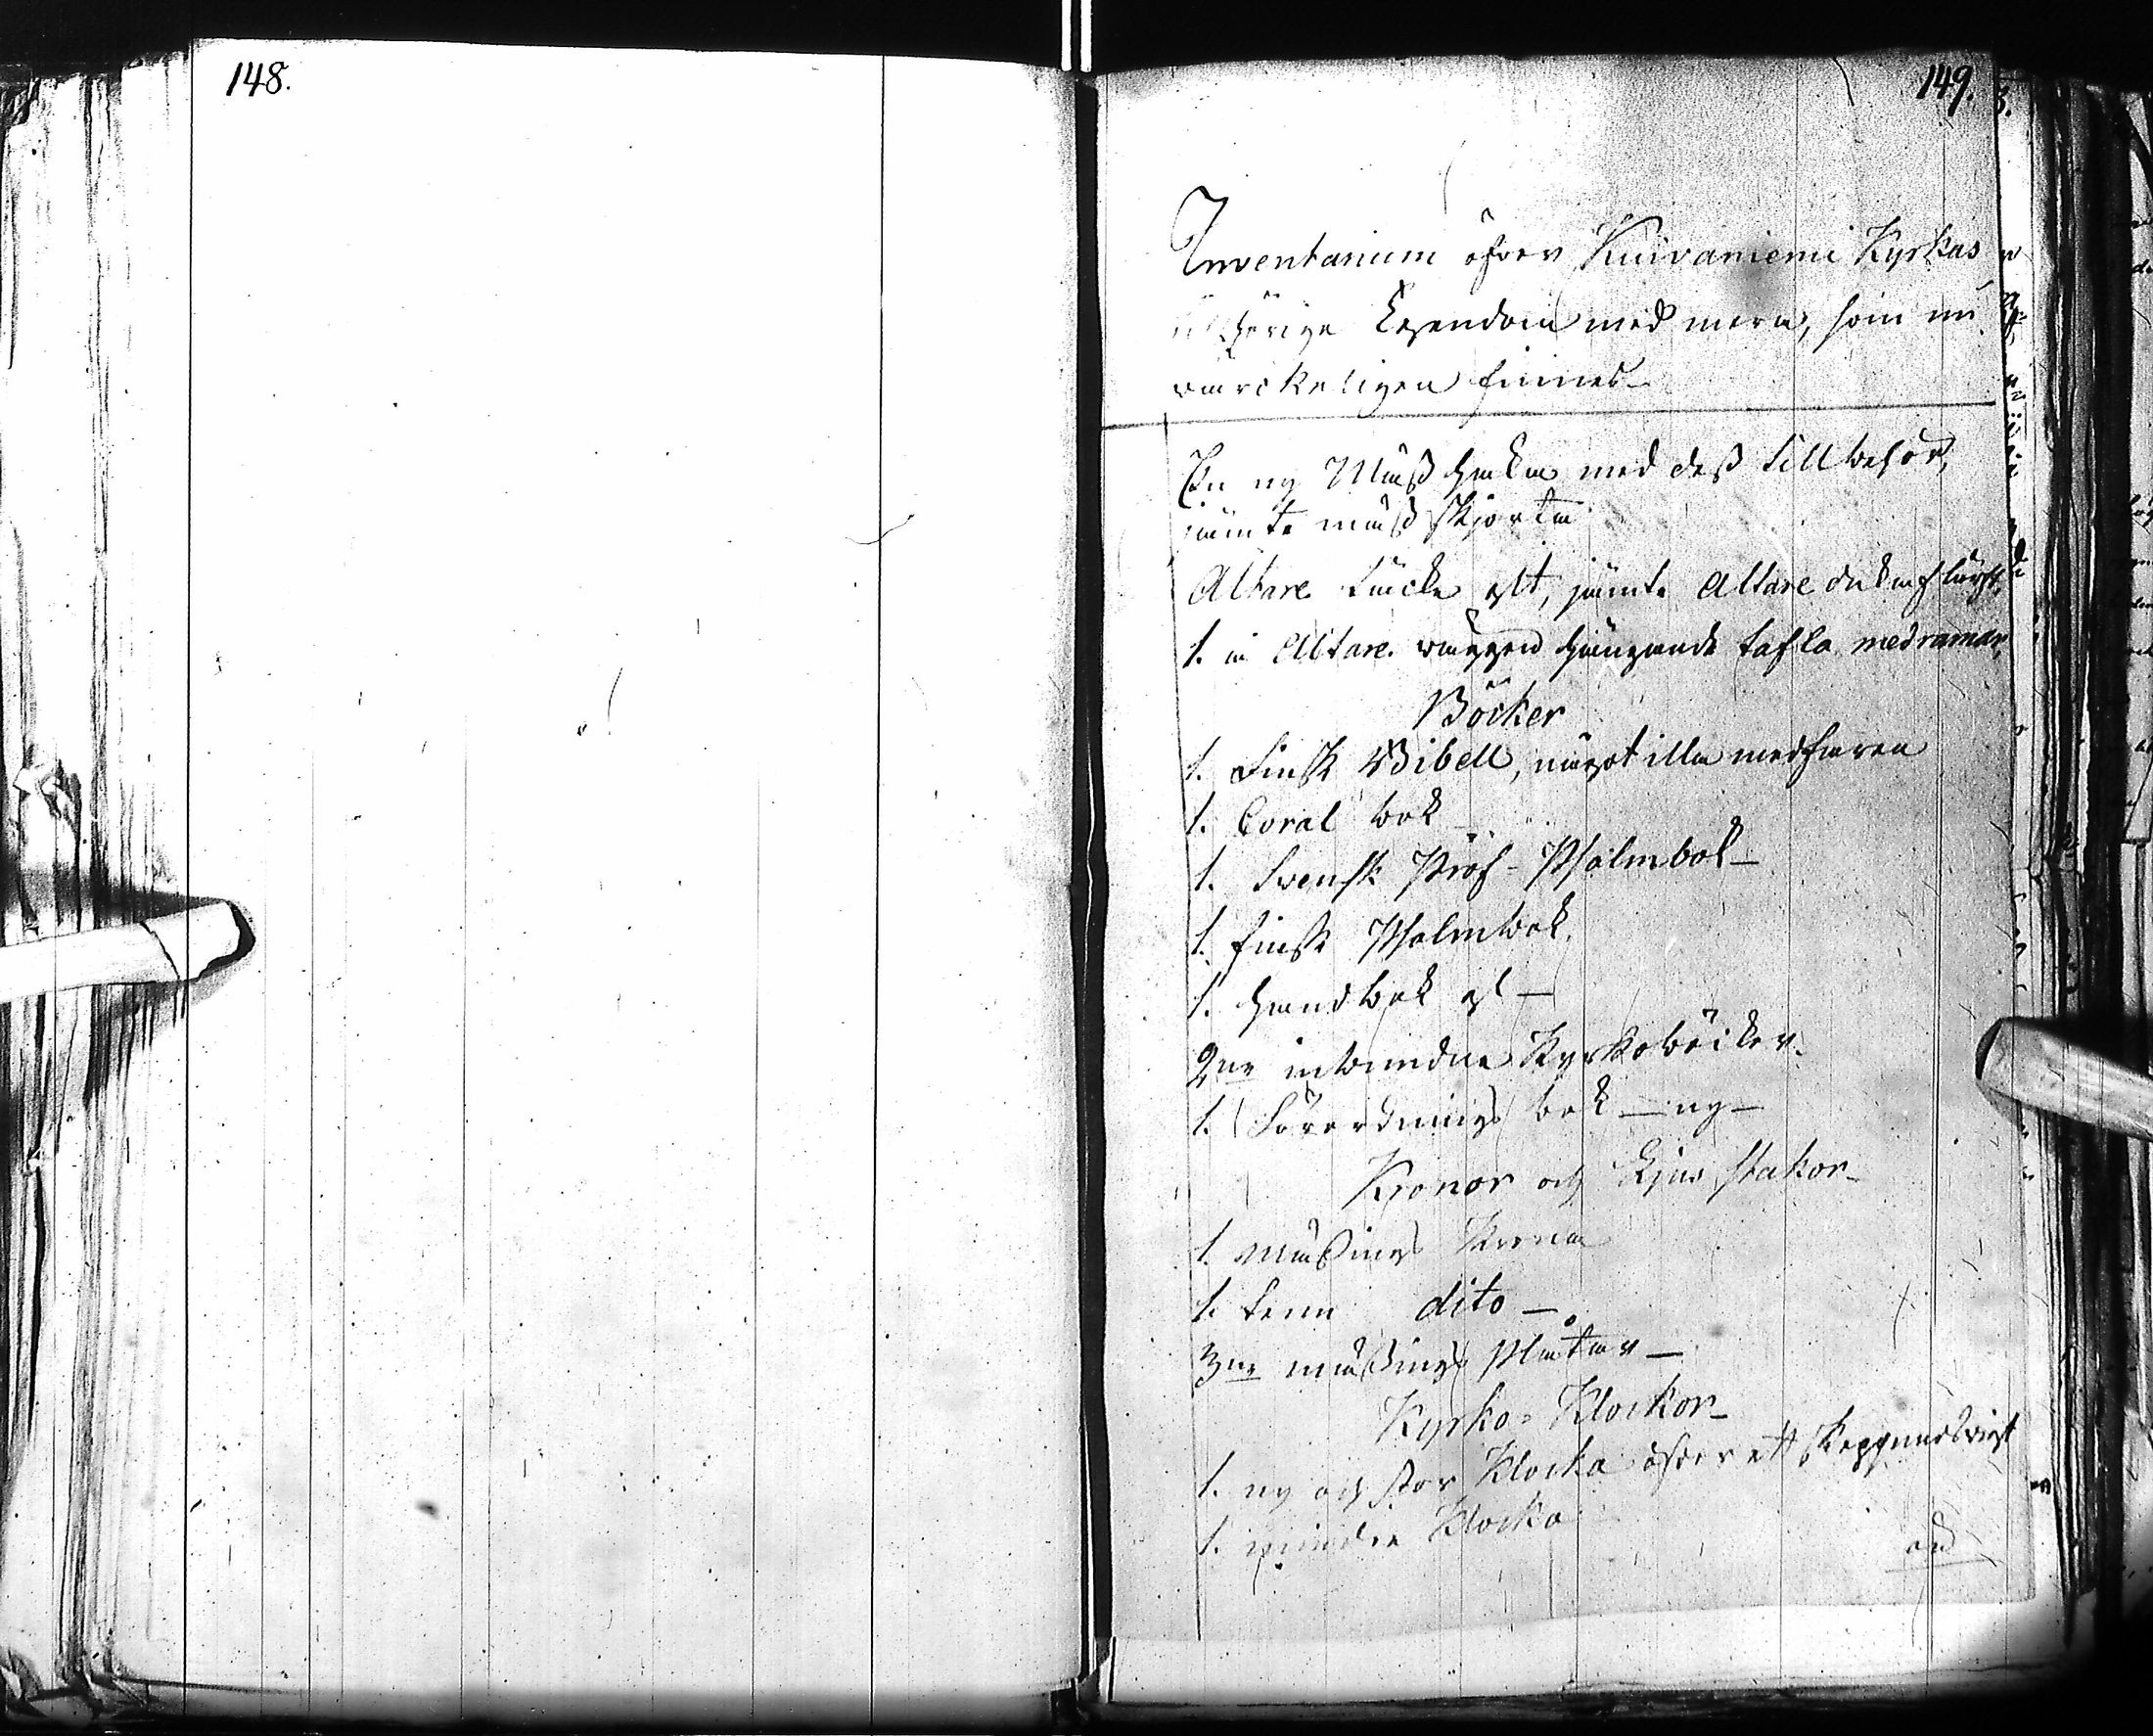 148.
149.
Inventarium öfver Kuivaniemi Kyrkas
tillhörige Egendom med mera, som nu
värckeligen finnes
En ny Mässhaka med dess tillbehör,
jämte mässskjorta
Altare täcke gilt, jämte Altare duk af lärft,
1. å Altare väggen hängande tafla med ramar,
Böcker
1. Finsk Bibell, något illa medfaren
1. Coral bok
1. Svensk Prof-Psalmbok
1. finsk Psalmbok.
1. Handbok gl
2ne inbundne Kyrkoböcker.
1. Förordnings bok ny
Kronor och Ljus stakor
1. Mässings Krona
1. tenn dito
3ne mässings Plåtar
Kyrko-Klockor
1. ny och stor Klocka öfver ett skeppundsvigt
1. mindre Klocka